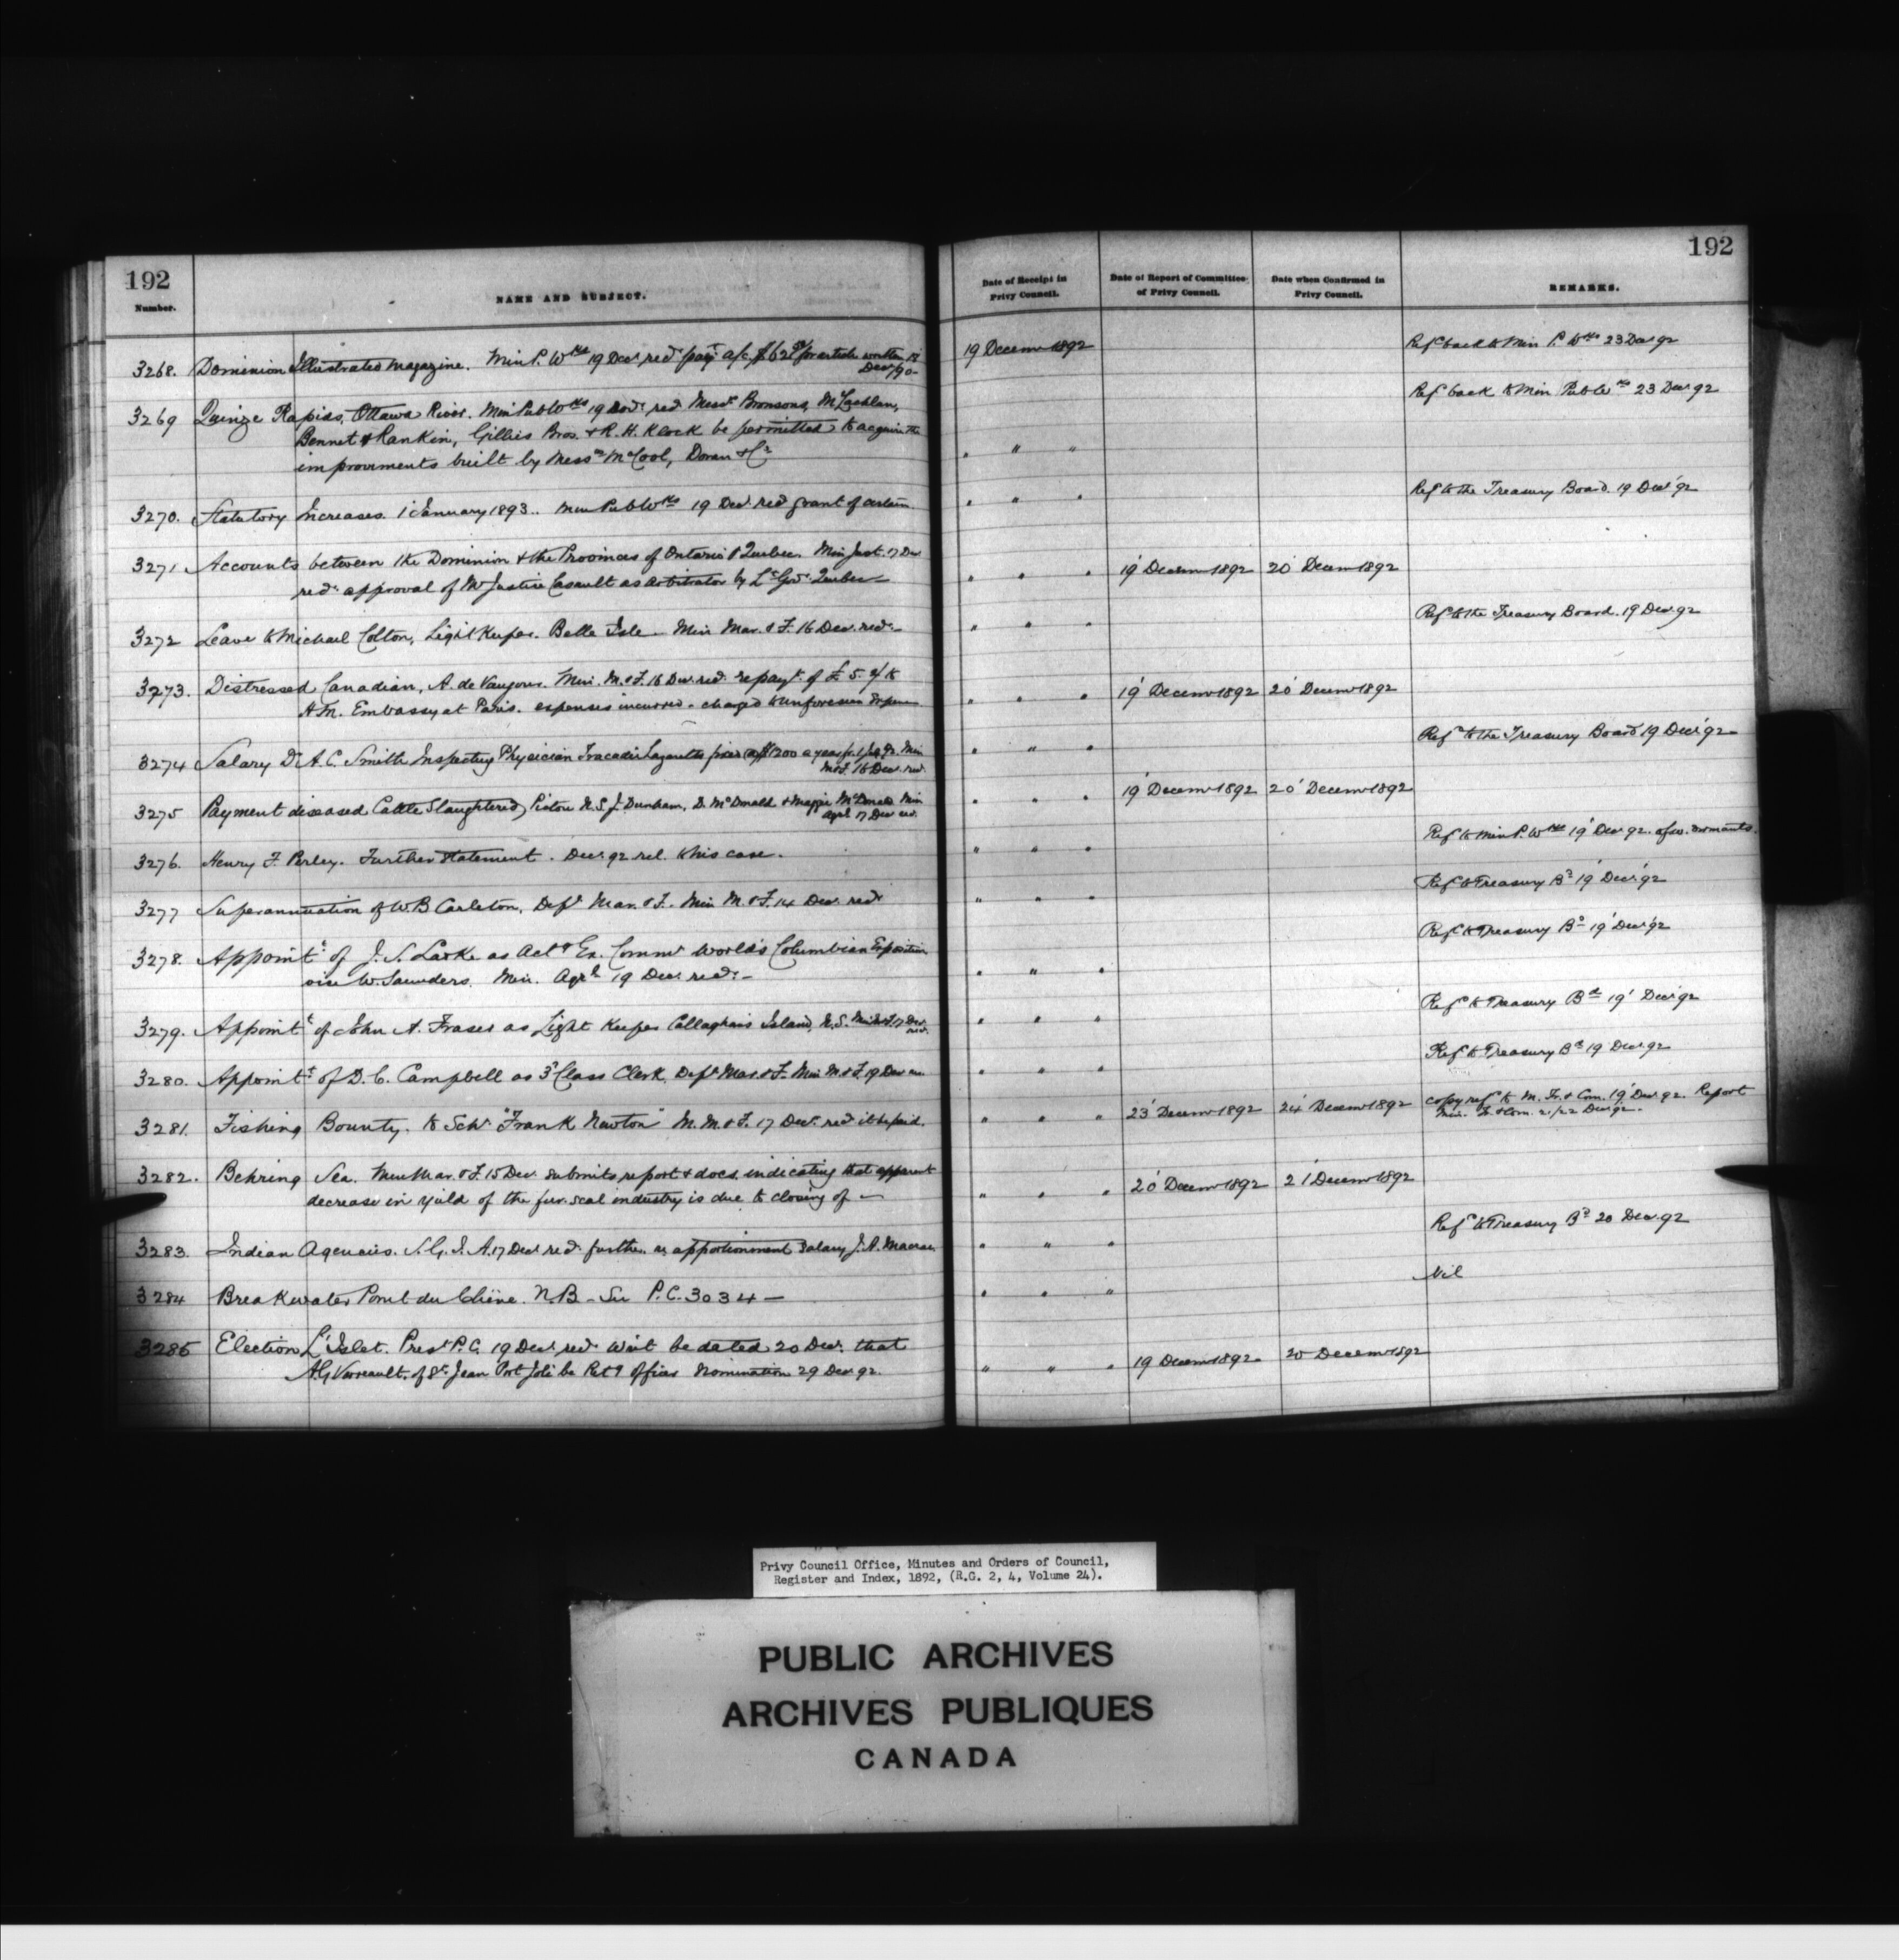 192
Number.
NAME AND SUBJECT.
Date of Receipt in Privy Council.
Date of Report of Committee of Privy Council.
Date when Confirmed in Privy Council.
REMARKS.
192
3268. Dominion Illustrated Magazine. Min P. Wks 19 Decr recd payt a/c $62 for article written 18 Decr/90 19 Decemr 1892 Refd back to Min P. Wks 23 Decr 92
3269 Quinze Rapids, Ottawa River. Min Pub Wks 19 Decr recd Messrs Bronsons, McLachlan, Refd back to Min Pub Wks 23 Decr 92
Bennet & Rankin, Gillies Bros. & R. H. Klock be permitted to acquire the
improvements built by Messrs McCool, Doran & Co " " "
3270. Statutory Increases 1 January 1893. Min Pub Wks 19 Decr recd grant of certain " " " Refd to the Treasury Board. 19 Decr 92
3271 Accounts between the Dominion & the Provinces of Ontario & Quebec. Min Just. 17 Decr
recd approval of Mr Justice Casault as arbitrator by Lt Govr Quebec " " " 19 Decemr 1892 20 Decemr 1892
3272 Leave to Michael Colton, Light Keeper. Belle Isle. Min Mar. & F. 16 Decr recd " " " Refd to the Treasury Board. 19 Decr 92
3273. Distressed Canadian, A. de Vaujours. Min. M. & F. 16 Decr recd repayt of £5 to
H. M. Embassy at Paris. expenses incurred - charged to unforeseen Expenses " " " 19 Decemr 1892 20 Decemr 1892
3274 Salary Dr A. C. Smith Inspecting Physician Tracadie Lazaretto fixed @ $1200 a year Min M&F. 16 Decr recd " " " Refd to the Treasury Board 19 Decr 92
3275 Payment diseased Cattle Slaughtered, Pictou N.S. J. Dunham, D. McDonald & Maggie McDonald Min Agrl 17 Decr recd " " " 19 Decemr 1892 20 Decemr 1892
3276. Henry F. Perley. Further Statement. Decr 92 rel. to his case. " " " Refd to Min P. Wks 19 Decr 92
3277 Superannuation of W. B Carleton, Dept Mar. & F. Min M & F. 14 Decr recd " " " Refd to Treasury Bd 19 Decr 92
3278. Appointt of J. S. Larke as Actg Ex. Commr World's Columbian Exposition Refd to Treasury Bd 19 Decr 92
vice W. Saunders. Min. Agrl 19 Decr recd " " "
3279. Appointt of John A. Fraser as Light Keeper Callaghans Island, N.S. Min M&F 17 Decr recd " " " Refd to Treasury Bd 19 Decr 92
3280. Appointt of D. C. Campbell as 3 Class Clerk, Dept Mar. & F. Min M & F. 19 Decr " " " Refd to Treasury Bd 19 Decr 92
3281. Fishing Bounty. to Schr "Frank Newton" M. M. & F. 17 Decr recd it be paid. " " " 23 Decemr 1892 24 Decemr 1892 copy refd to M. Tr. & Com. 19 Decr 92. Report
Min. Tr. & Com. 21/22 Decr 92.
3282. Behring Sea. Min Mar. & F. 15 Decr submits report & docs. indicating that apparent
decrease in yield of the fur. seal industry is due to closing of " " " 20 Decemr 1892 21 Decemr 1892
3283. Indian Agencies. S. G. I. A. 17 Decr recd further re apportionment Salary J. A. Macrae. " " " Refd to Treasury Bd 20 Decr 92
3284 Breakwater Point du Chêne. N.B. See P.C. 3034 " " " Nil
3285 Election L'Islet. Prest P.C. 19 Decr recd Writ be dated 20 Decr that
A. G. Verreault. of St. Jean Port Joli be Retg Officer Nomination 29 Decr 92. " " " 19 Decemr 1892 20 Decemr 1892
Privy Council Office, Minutes and Orders of Council,
Register and Index, 1892, (R.G. 2, 4, Volume 24).
PUBLIC ARCHIVES
ARCHIVES PUBLIQUES
CANADA